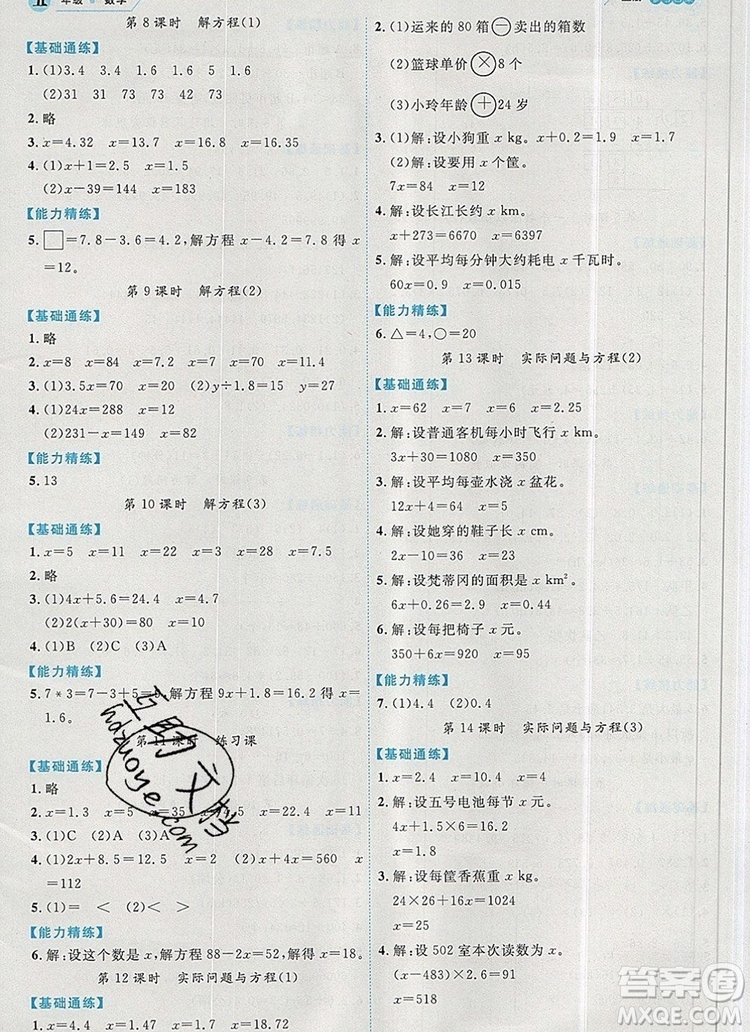 五年级·数学
第8课时 解方程(1)
【基础通练】
1.(1)3.4 3.4 1.6 1.6 5 1.6
(2)31 31 73 42 73
2.略
3.x=4.32 x=13.7 x=16.8 x=16.35
4.(1)x+1=2.5 x=1.5
(2)x-39=144 x=183
【能力精练】
5.□=7.8-3.6=4.2,解方程 x-4.2=7.8 得 x
=12。
第9课时 解方程(2)
【基础通练】
1.略
2.x=8 x=84 x=7 x=70 x=11 x=34.5
3.(1)3.5x=70 x=20 (2)y÷1.8=15 y=27
4.(1)24x=288 x=12
(2)231-x=149 x=82
【能力精练】
5.13
第10课时 解方程(3)
【基础通练】
1.x=5 x=11 x=22 x=3 x=28 x=7.5
2.略
3.(1)4x+5.6=24.4 x=4.7
(2)3x-80=10 x=30
4.(1)B (2)C (3)A
【能力精练】
5.7*3=7-3+5=9,解方程 9x+1.8=16.2 得 x=
1.6。
第11课时 练习课
【基础通练】
1.略
2.x=1.3 x=5 x=35 x=13.5 x=22.4 x=11
3.(1)C (2)A (3)A
4.(1)2x-8=13.4 x=10.7 (2)x+4x=560 x
=112
5.(1)= (2)< > >
【能力精练】
6.解:设这个数是 x,解方程 88-2x=52,解得 x=18。
第12课时 实际问题与方程(1)
【基础通练】
1.x=40 x=9.3 x=1.9 x=18.72
2.(1)运来的 80 箱⊖卖出的箱数
(2)篮球单价⊗8 个
(3)小玲年龄⊕24 岁
3.(1)解:设小狗重 x kg。 x+0.2=1.9 x=1.7
(2)解:设要用 x 个筐。
7x=84 x=12
4.解:设长江长约 x km。
x+273=6670 x=6397
5.解:设平均每分钟大约耗电 x 千瓦时。
60x=0.9 x=0.015
【能力精练】
6.△=4,○=20
第13课时 实际问题与方程(2)
【基础通练】
1.x=62 x=7 x=6 x=2.25
2.解:设普通客机每小时飞行 x km。
3x+30=1080 x=350
3.解:设平均每壶水浇 x 盆花。
12x+4=64 x=5
4.解:设她穿的鞋子长 x cm。
0.2x-10=36 x=230
5.解:设梵蒂冈的面积是 x km²。
6x+0.26=2.9 x=0.44
6.解:设每把椅子 x 元。
350+6x=920 x=95
【能力精练】
7.(1)4.4 (2)0.4
第14课时 实际问题与方程(3)
【基础通练】
1.x=2.4 x=9 x=0.4 x=2.5
2.解:设五号电池每节 x 元。
4x+1.5×6=16.2
x=1.8
3.解:设每筐香蕉重 x kg。
24×26+16x=1024
x=25
4.解:设 502 室本次读数为 x。
(x-483)×2.6=91
x=518
互助文档
hdzuoye.com
答案圈
MXQE.COM